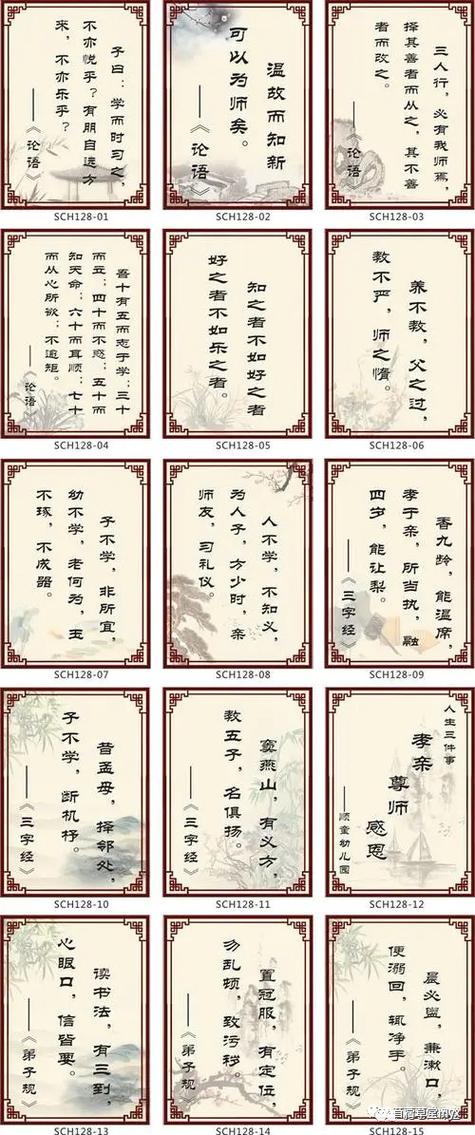 子曰：学而时习之，
不亦悦乎？有朋自远方
来，不亦乐乎？
——《论语》
SCH128-01
温故而知新
可以为师矣。
——《论语》
SCH128-02
三人行，必有我师焉，
择其善者而从之，其不善
者而改之。
——《论语》
SCH128-03
吾十有五而志于学；三十
而立；四十而不惑；五十而
知天命；六十而耳顺；七十
而从心所欲；不逾矩。
——《论语》
SCH128-04
知之者不如好之者
好之者不如乐之者。
SCH128-05
养不教，父之过，
教不严，师之惰。
SCH128-06
子不学，非所宜，
幼不学，老何为，玉
不琢，不成器。
SCH128-07
人不学，不知义，
为人子，方少时，亲
师友，习礼仪。
SCH128-08
香九龄，能温席，
孝于亲，所当执，融
四岁，能让梨。
——《三字经》
SCH128-09
昔孟母，择邻处，
子不学，断机杼。
——《三字经》
SCH128-10
窦燕山，有义方，
教五子，名俱扬。
——《三字经》
SCH128-11
人生三件事
孝亲
尊师
感恩
——顺童幼儿园
SCH128-12
读书法，有三到，
心眼口，信皆要。
——《弟子规》
SCH128-13
置冠服，有定位，
勿乱顿，致污秽。
——《弟子规》
SCH128-14
晨必盥，兼漱口，
便溺回，辄净手。
——《弟子规》
SCH128-15